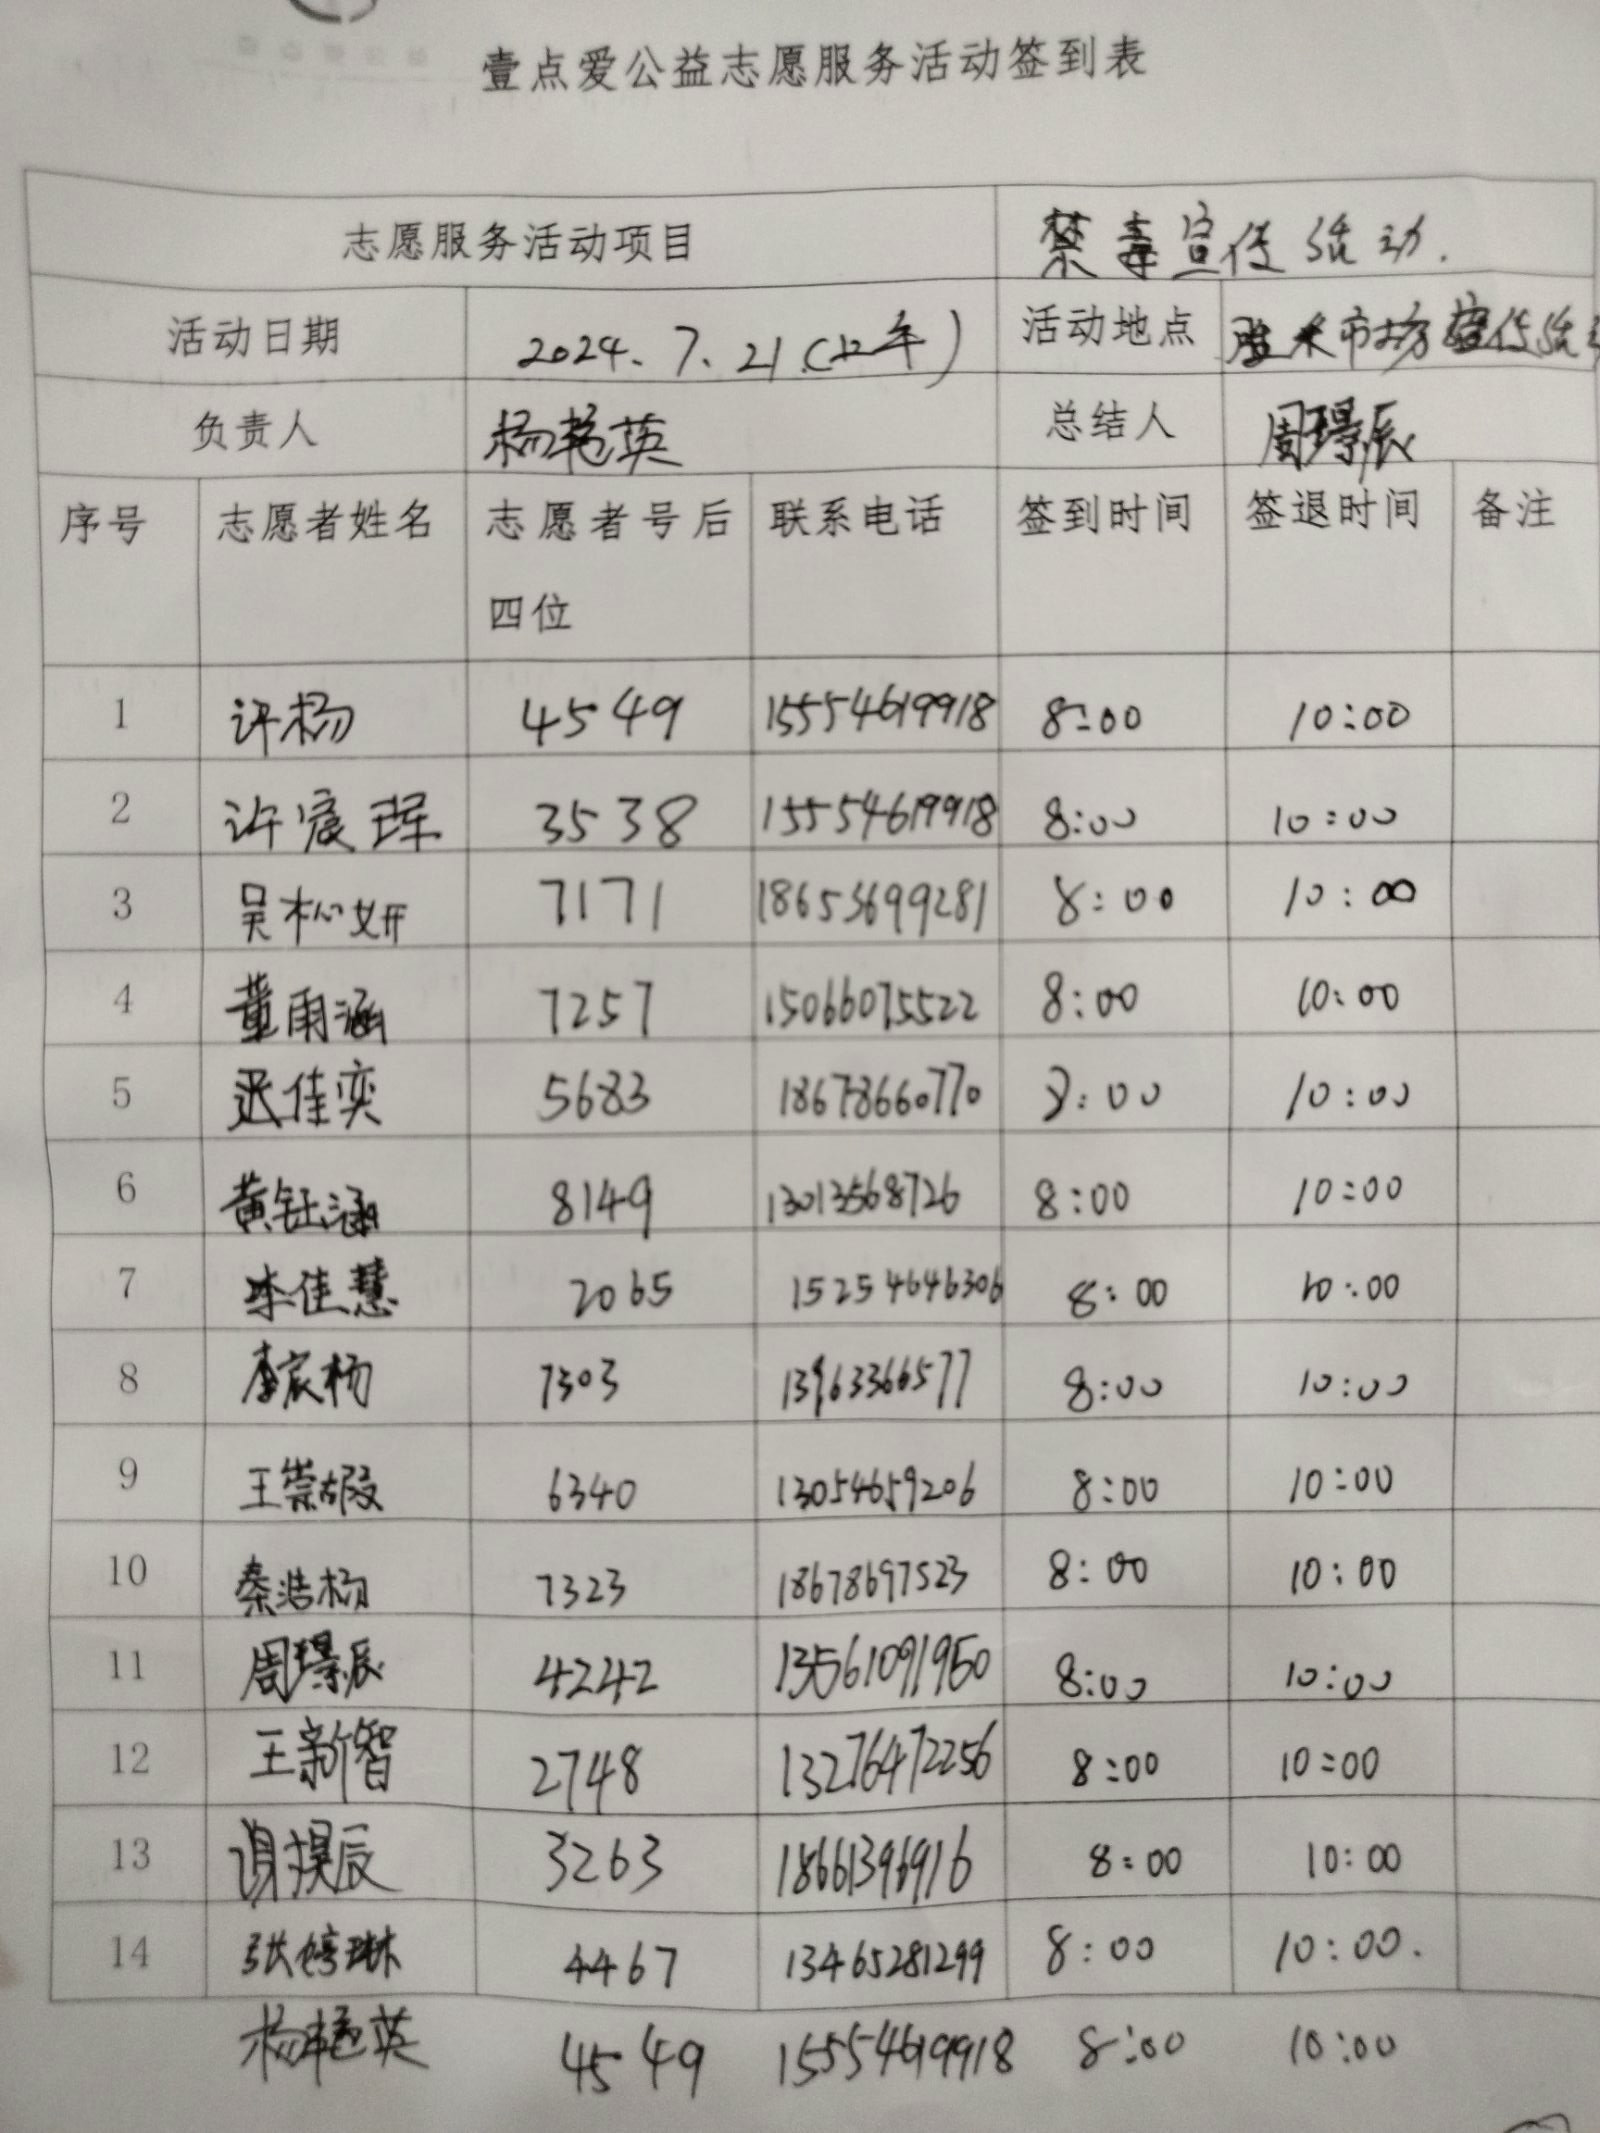 壹点爱公益志愿服务活动签到表
志愿服务活动项目 禁毒宣传活动.
活动日期 2024.7.21(上午) 活动地点 市场宣传活动
负责人 杨艳英 总结人 周璟辰
序号 志愿者姓名 志愿者号后 联系电话 签到时间 签退时间 备注
四位
1 许杨 4549 15554619918 8:00 10:00
2 许宸珲 3538 15554619918 8:00 10:00
3 吴松妍 7171 18653699281 8:00 10:00
4 董雨涵 7257 15066075522 8:00 10:00
5 迟佳奕 5683 18678660770 8:00 10:00
6 黄钰涵 8149 13013568726 8:00 10:00
7 李佳慧 2065 15254646306 8:00 10:00
8 李宸杨 7303 13963366577 8:00 10:00
9 王崇嘏 6340 13054659206 8:00 10:00
10 秦浩杨 7323 18678697523 8:00 10:00
11 周璟辰 4242 13561091950 8:00 10:00
12 王新智 2748 13276472256 8:00 10:00
13 辰 3263 18661396916 8:00 10:00
14 张婷琳 4467 13465281299 8:00 10:00.
杨艳英 4549 15554619918 8:00 10:00